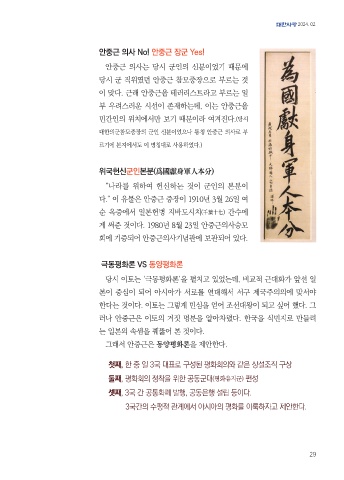 대한사랑 2024. 02
안중근 의사 No! 안중근 장군 Yes!
안중근 의사는 당시 군인의 신분이었기 때문에
당시 군 직위였던 안중근 참모중장으로 부르는 것
이 맞다. 근래 안중근을 테러리스트라고 부르는 일
부 우려스러운 시선이 존재하는데, 이는 안중근을
민간인의 위치에서만 보기 때문이라 여겨진다.(당시
대한의군참모중장의 군인 신분이었으나 통칭 안중근 의사로 부
르기에 본지에서도 이 명칭대로 사용하였다.)
위국헌신군인본분(爲國獻身軍人本分)
“나라를 위하여 헌신하는 것이 군인의 본분이
다.” 이 유묵은 안중근 중장이 1910년 3월 26일 여
순 옥중에서 일본헌병 지바도시치(千葉十七) 간수에
게 써준 것이다. 1980년 8월 23일 안중근의사숭모
회에 기증되어 안중근의사기념관에 보관되어 있다.
爲國獻身軍人本分
극동평화론 VS 동양평화론
당시 이토는 ‘극동평화론’을 펼치고 있었는데, 비교적 근대화가 앞선 일
본이 중심이 되어 아시아가 서로를 연대해서 서구 제국주의의에 맞서야
한다는 것이다. 이토는 그렇게 민심을 얻어 조선대왕이 되고 싶어 했다. 그
러나 안중근은 이토의 거짓 명분을 알아차렸다. 한국을 식민지로 만들려
는 일본의 속셈을 꿰뚫어 본 것이다.
그래서 안중근은 동양평화론을 제안한다.
첫째, 한 중 일 3국 대표로 구성된 평화회의와 같은 상설조직 구상
둘째, 평화회의 정착을 위한 공동군대(평화유지군) 편성
셋째, 3국 간 공통화폐 발행, 공동은행 설립 등이다.
3국간의 수평적 관계에서 아시아의 평화를 이룩하자고 제안한다.
29